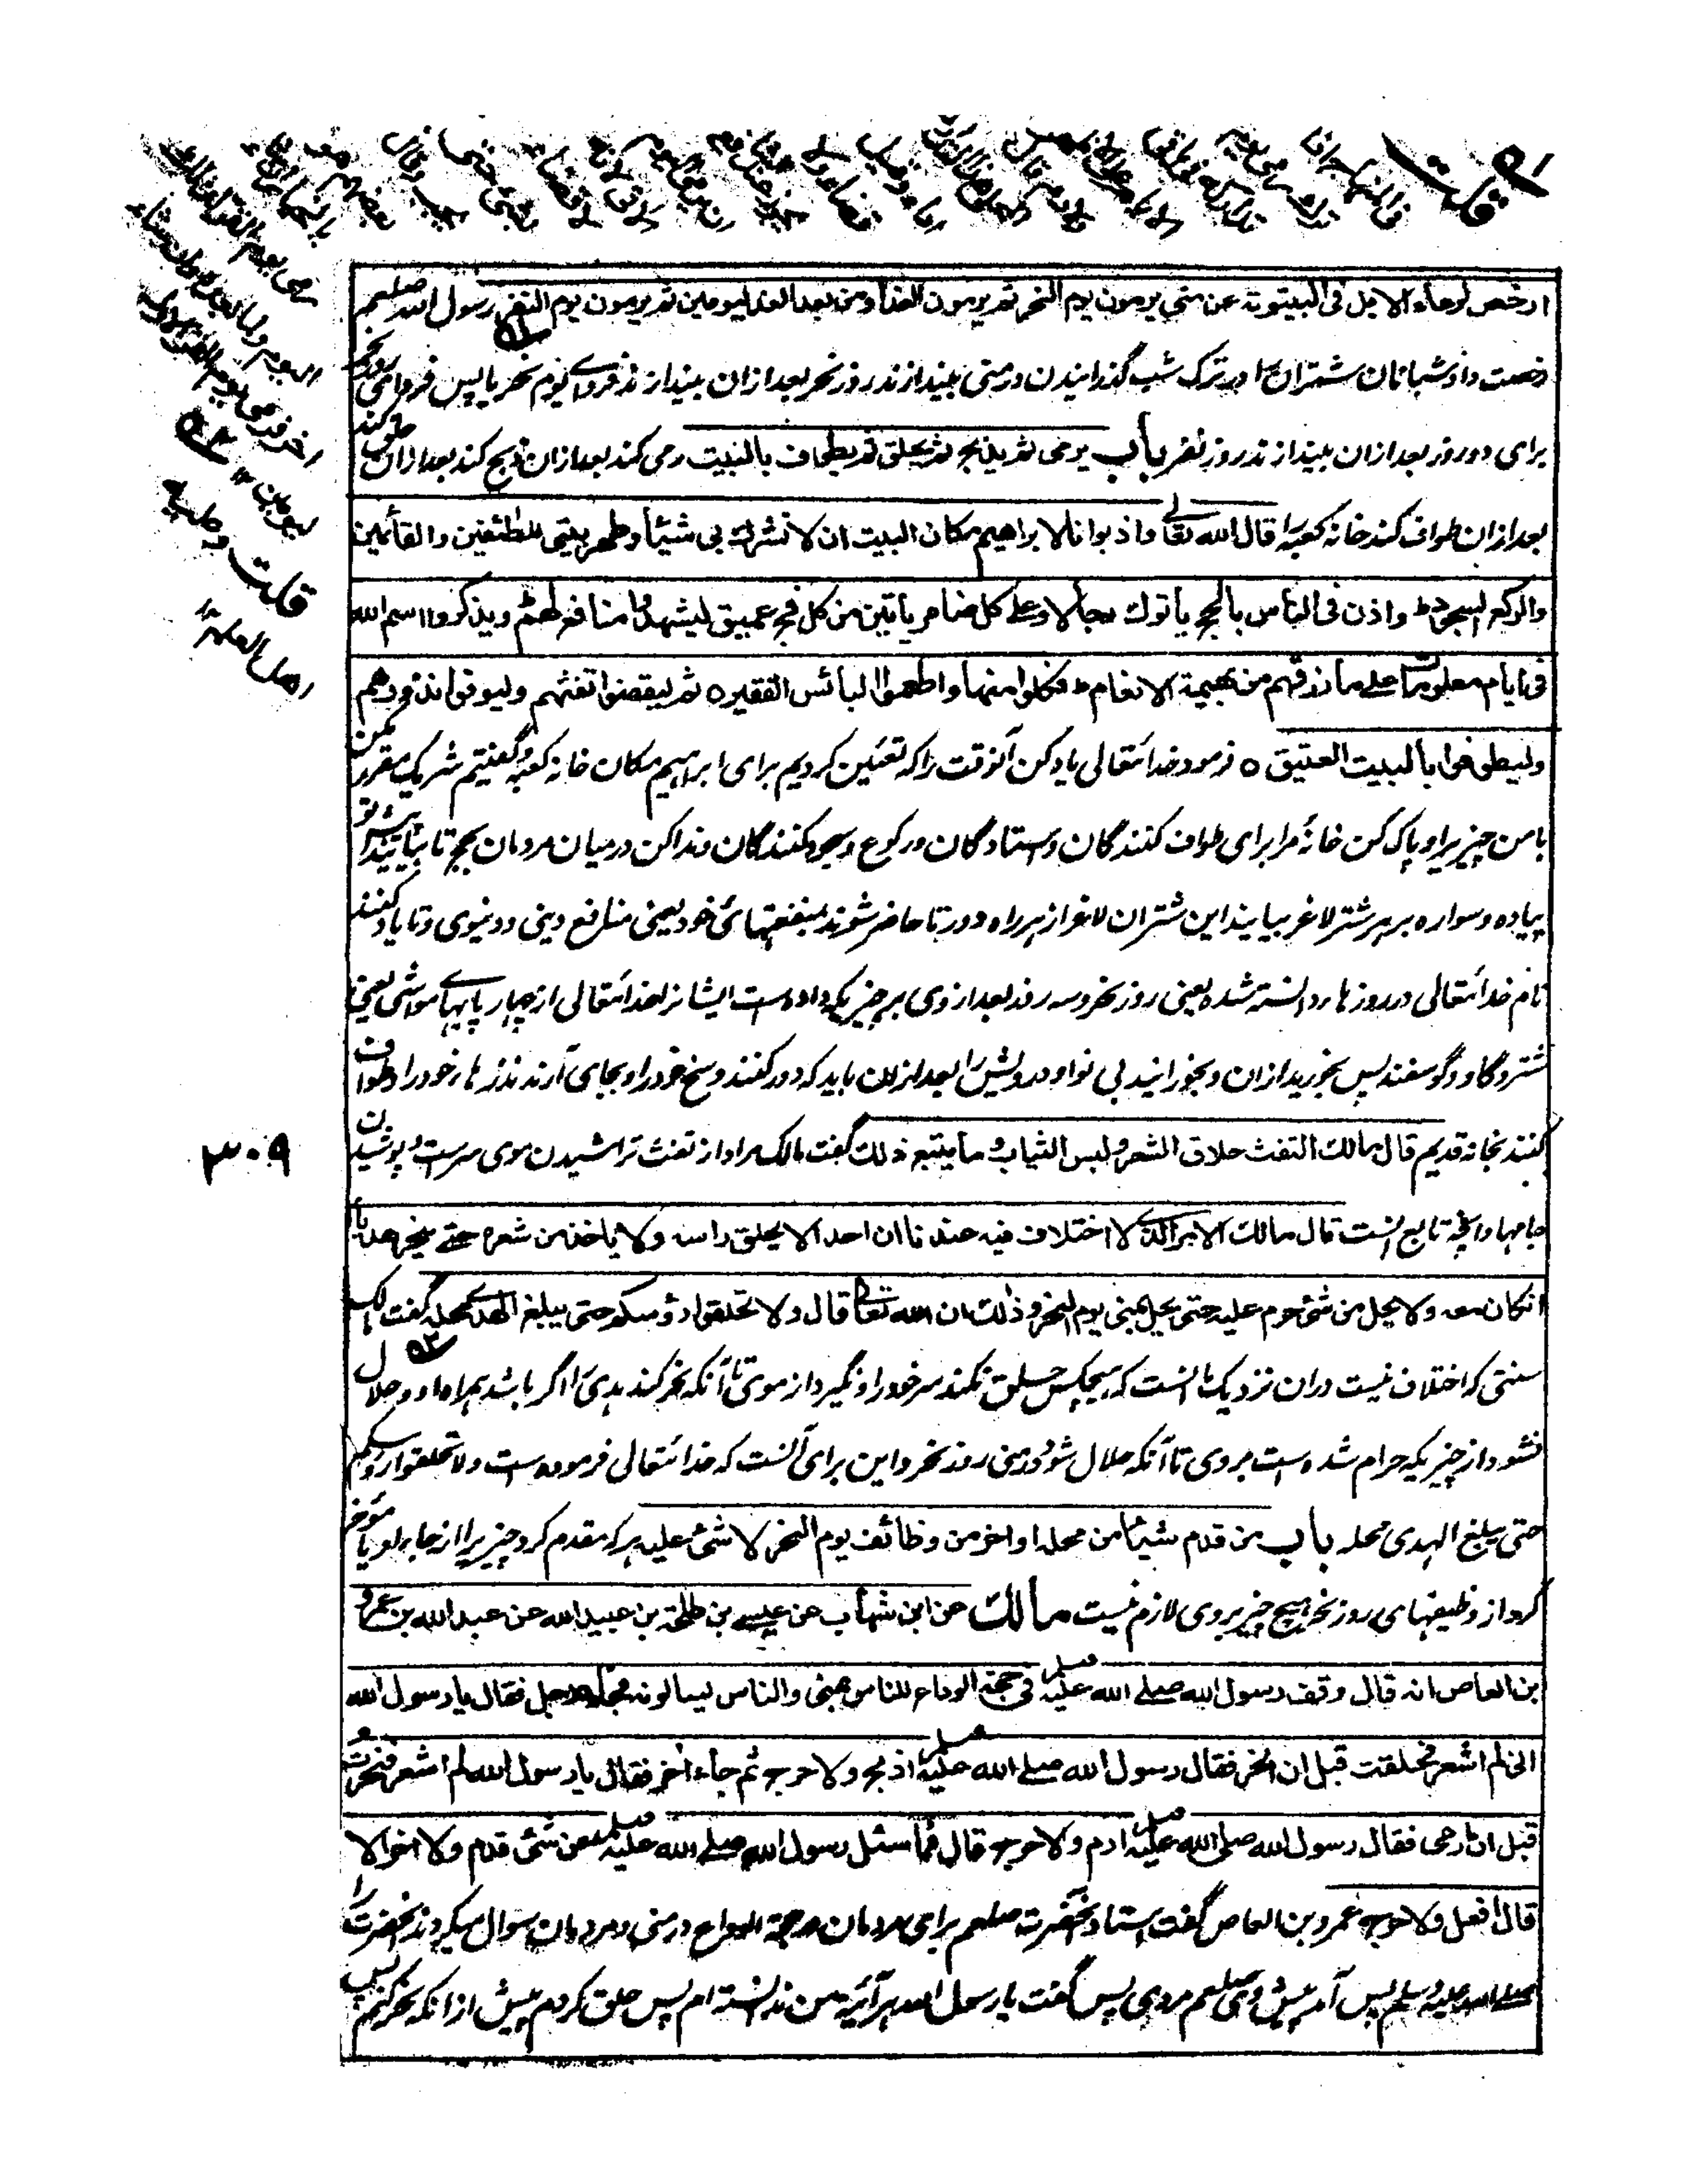 ارخص لرعاء الابل فى البيتوتة عن منى يرمون يوم النحر ثم يرمون الغداو من بعد الغد ليومين ثم يرمون يوم النفر رسول الله صلعم
رخصت داد شبانان شتران را در ترک شب گذرانیدن در منی بیندازند روز نحر بعد ازان بیندازند فردای یوم نحر یا پس فردای روز نحر
برای دو روز بعد ازان بیندازند روز نفر باب یرمی ثم یذبح ثم یحلق ثم یطوف بالبیت رمی کند بعد ازان ذبح کند بعد ازان حلق کند
بعد ازان طواف کند خانه کعبه را قال الله تعالى واذ بوانا لابراهيم مكان البيت ان لا تشرك بى شيئا وطهر بيتى للطائفين والقائمين
والركع السجود ط واذن فى الناس بالحج يأتوك رجالا وعلى كل ضامر يأتين من كل فج عميق ليشهدوا منافع لهم ويذكروا اسم الله
فى ايام معلومات على ما رزقهم من بهيمة الانعام ط فكلوا منها واطعموا البائس الفقير ه ثم ليقضوا تفثهم وليوفوا نذورهم
وليطوفوا بالبيت العتيق ه فرمود خدا تعالی یاد کن آنوقت را که تعیین کردیم برای ابراهیم مکان خانه کعبه و گفتیم شریک مقرر مکن
با من چیزیرا و پاک کن خانهٔ مرا برای طواف کنندگان و استادگان و رکوع و سجود کنندگان و ندا کن در میان مردمان بحج تا بیایند پیش تو
پیاده و سواره بر هر شتر لاغر بیایند این شتران لاغر از هر راه دور تا حاضر شوند بمنفعتهای خود یعنی منافع دینی و دنیوی و تا یاد کنند
نام خدا تعالی در روزهاء دانسته شده یعنی روز نحر و سه روز بعد از وی بر چیزیکه داده است ایشانرا خدا تعالی از چهار پایهای مواشی یعنی
شتر و گاو و گوسفند پس بخورید ازان و بخورانید بی نوا و درویش را بعد ازان باید که دور کنند وسخ خود را و بجای آرند نذرهاء خود را و طواف
کنند بخانه قدیم قال مالك التفث حلاق الشعر ولبس الثياب وما يتبع ذلك گفت مالک مراد از تفث تراشیدن موی سر ست و پوشیدن
جامها و آنچه تابع انست قال مالك الامر الذى لا اختلاف فيه عندنا ان احدا لا يحلق راسه ولا ياخذ من شعره حتى ينحر هديا
انكان معه ولا يحل من شئ حرم عليه حتى يحل بمنى يوم النحر وذلك ان الله تعالى قال ولا تحلقوا رؤسكم حتى يبلغ الهدى محله گفت مالک
سنتی که اختلاف نیست دران نزدیک ما انست که هیچکس حلق نکند سر خود را و نگیرد از موی تا آنکه نحر کند هدی را اگر باشد همراه او و حلال
نشود از چیزیکه حرام شده است بر وی تا آنکه حلال شود در منی روز نحر و این برای آنست که خدا تعالی فرموده است ولا تحلقوا رؤسکم
حتى يبلغ الهدى محله باب من قدم شيئا من محله او اخر من وظائف يوم النحر لا شئ عليه هر که مقدم کرد چیزیرا از جاء او یا مؤخر
کرد از وظیفهای روز نحر هیچ چیز بر وی لازم نیست مالك عن ابن شهاب عن عيسى بن طلحة بن عبيد الله عن عبد الله بن عمرو
بن العاص انه قال وقف رسول الله صلى الله عليه وسلم فى حجة الوداع للناس بمنى والناس يسالونه فجاءه رجل فقال يا رسول الله
انى لم اشعر فحلقت قبل ان انحر فقال رسول الله صلى الله عليه وسلم اذبح ولا حرج ثم جاء اخر فقال يا رسول الله لم اشعر فنحرت
قبل ان ارمى فقال رسول الله صلى الله عليه وسلم ارم ولا حرج قال فما سئل رسول الله صلى الله عليه وسلم عن شئ قدم ولا اخر الا
قال افعل ولا حرج عمرو بن العاص گفت استاد آنحضرت صلعم برای مردمان در حجة الوداع در منی و مردمان سوال میکردند آنحضرت را
صلى الله علیه وسلم پس آمد پیش وی صلعم مردی پس گفت یا رسول الله هر آئینه من ندانسته ام پس حلق کردم پیش از انکه نحر کنم پس
۳۰۹
قلت
قلت وعليه
اهل العلم ۱۲